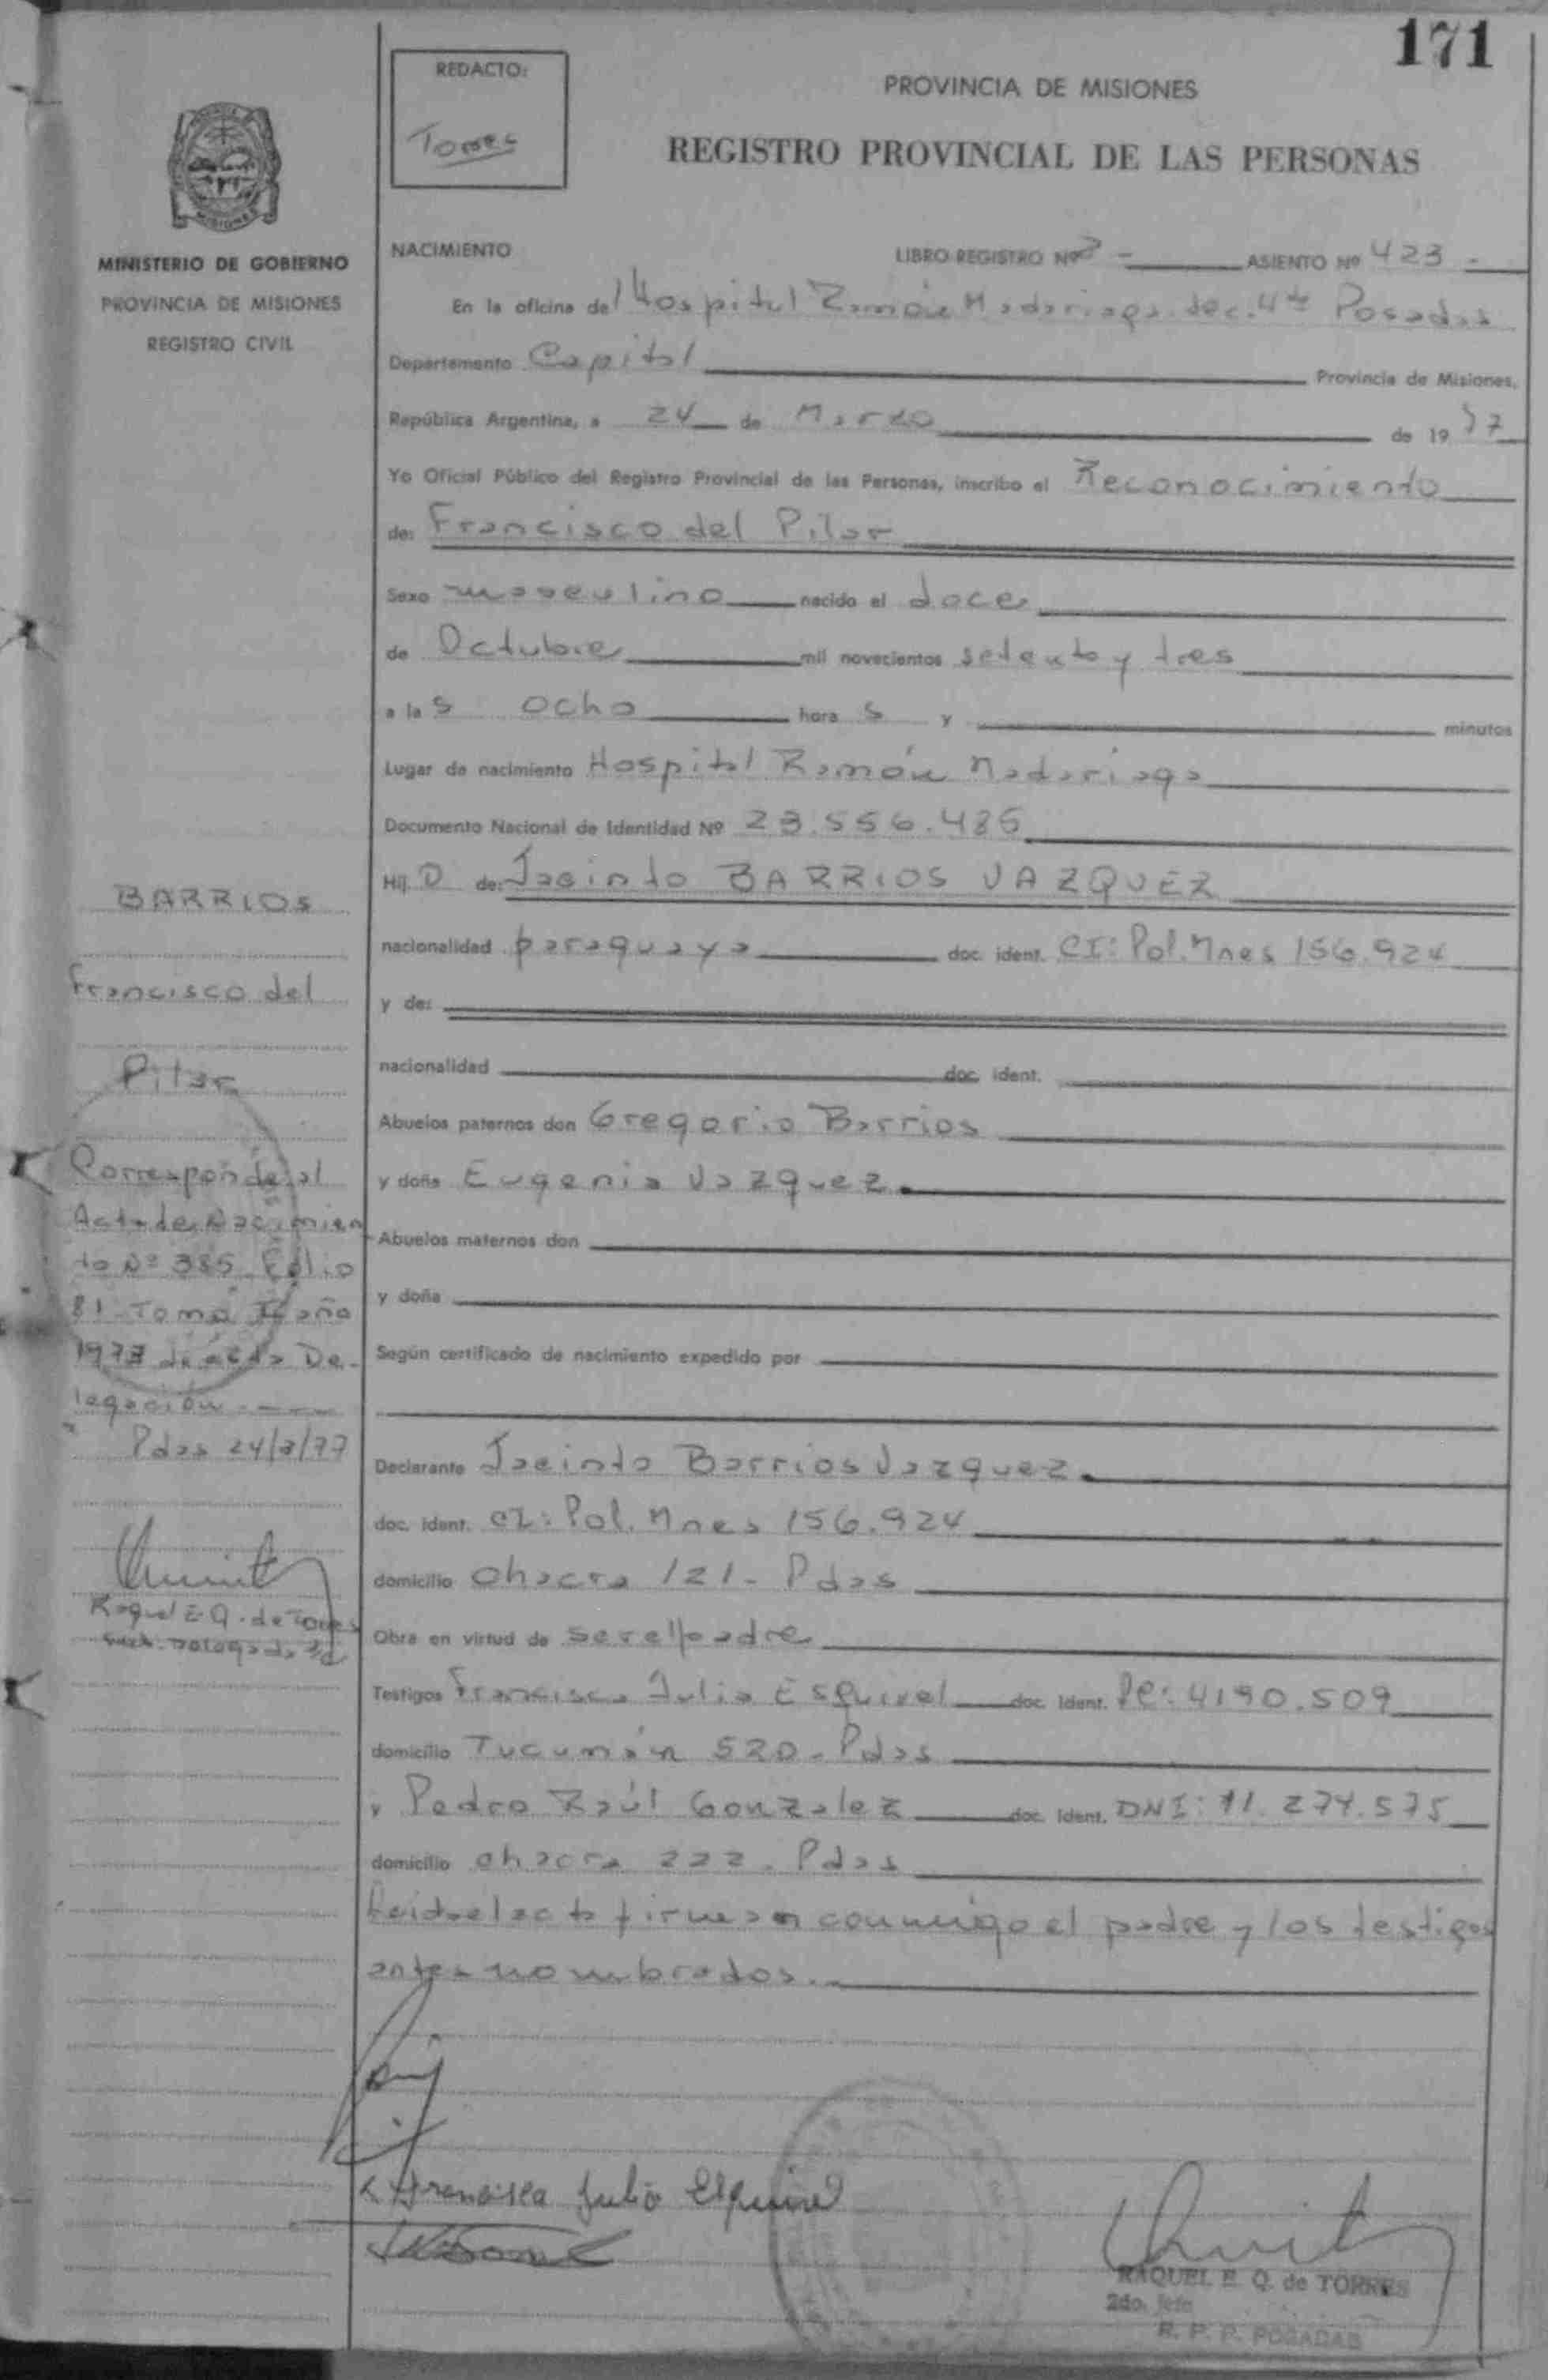 171
REDACTO:
Torres
PROVINCIA DE MISIONES
REGISTRO PROVINCIAL DE LAS PERSONAS
MISIONES
MINISTERIO DE GOBIERNO
PROVINCIA DE MISIONES
REGISTRO CIVIL
NACIMIENTO LIBRO REGISTRO Nº ASIENTO Nº 423 -
En la oficina del Hospital Ramón Madariaga. Sec. 4ta Posadas
Departamento Capital Provincia de Misiones,
República Argentina, a 24 de Marzo de 1977
Yo Oficial Público del Registro Provincial de las Personas, inscribo el Reconocimiento
de: Francisco del Pilar
Sexo masculino nacido el doce
de Octubre mil novecientos setenta y tres
a las ocho horas y minutos
Lugar de nacimiento Hospital Ramón Madariaga
Documento Nacional de Identidad Nº 23.556.485
Hijo de: Jacinto BARRIOS VAZQUEZ
nacionalidad paraguaya doc. ident. CI: Pol. Mnes 156.924
y de:
nacionalidad doc. ident.
Abuelos paternos don Gregorio Barrios
y doña Eugenia Vazquez.
Abuelos maternos don
y doña
Según certificado de nacimiento expedido por
Declarante Jacinto Barrios Vazquez.
doc. ident. CI: Pol. Mnes 156.924
domicilio chacra 121 - Pdas
Obra en virtud de ser el padre
Testigos Francisca Julia Esquivel doc. ident. LC: 4190.509
domicilio Tucumán 520 - Pdas
y Pedro Raúl Gonzalez doc. ident. DNI: 11.274.575
domicilio chacra 222. Pdas
Leida el acta firman conmigo el padre y los testigos
antes nombrados.
BARRIOS
Francisco del
Pilar
Corresponde al
Acta de Nacimien
to Nº 385 Folio
81 - Tomo II año
1973 de esta De-
legación. ----
Pdas 24/3/77
Raquel E Q. de Torres
Francisca Julia Esquivel
RAQUEL E. Q. de TORRES
2do. Jefe
R. P. P. POSADAS